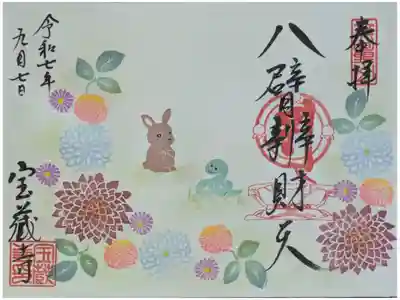 奉拝
八臂辨財天
宝蔵寺
令和七年
九月七日